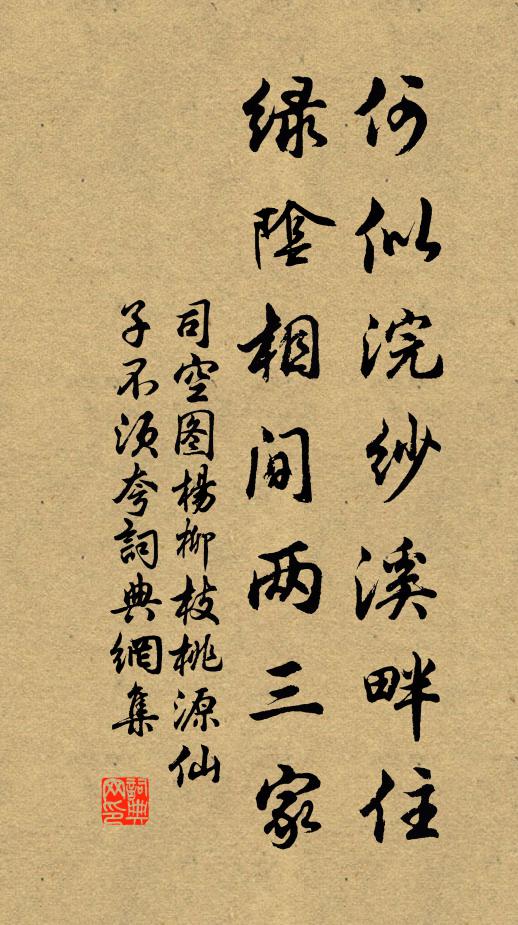 何似浣纱溪畔住
绿陰相间两三家
司空图杨柳枝桃源仙
子不须夸詞典網集
詞典
网印